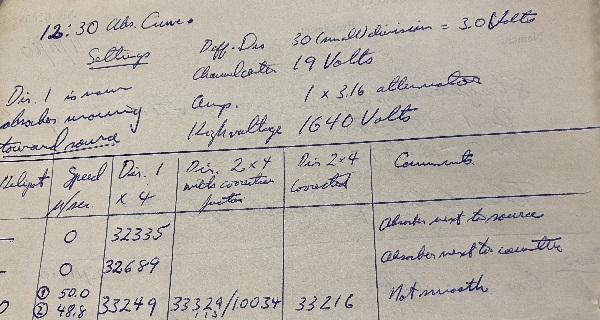 12:30 Abs. Curve.
Settings
Diff. Dis 30 (small) division = 3.0 Volts
19 Volts
Amp. 1 x 3.16 attenuator
High voltage 1640 Volts
Dir. 1 is now
absorber moving
toward source
Speed Dir. 1 Dir. 2 x 4 Dir 2 x 4 Comments
x 4 with correction corrected
factor
0 32335 Absorber next to source
0 32689 Absorber next to counter
① 50.0 Not smooth
② 48.8 33249 33329/10034 33216